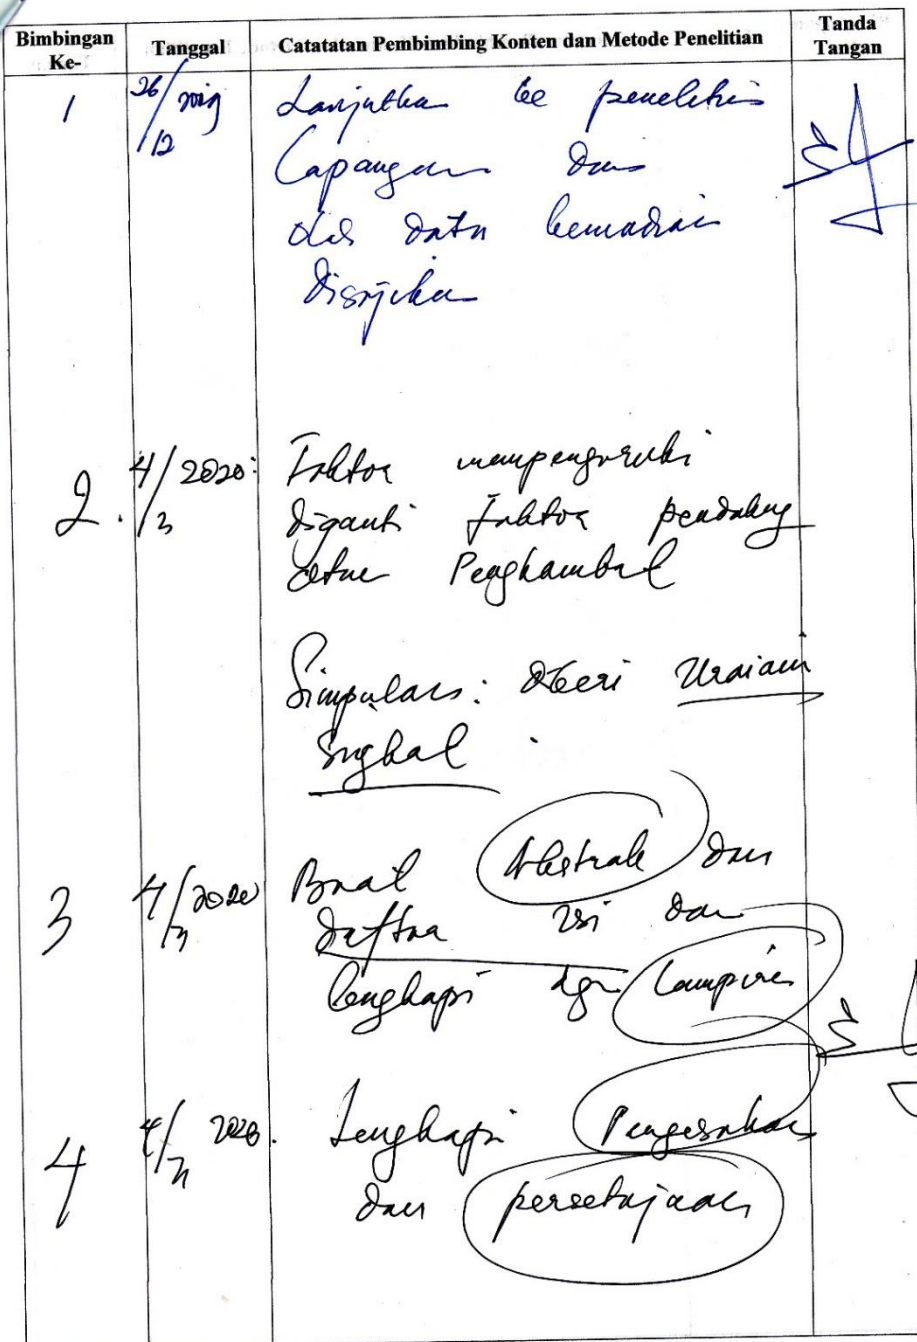 Bimbingan Ke- Tanggal Catatatan Pembimbing Konten dan Metode Penelitian Tanda Tangan
1 26/12 2019 Lanjutkan ke penelitian
Lapangan dan
olah data kemudian
disajikan
2. 4/3 2020 Faktor mempengaruhi
diganti Faktor pendukung
atau Penghambat
Simpulan: diberi Uraian
Singkat
3 4/3 2020 Buat Abstrak dan
daftar isi dan
lengkapi dgn lampiran
4 4/3 2020. Lengkapi Pengesahan
dan persetujuan